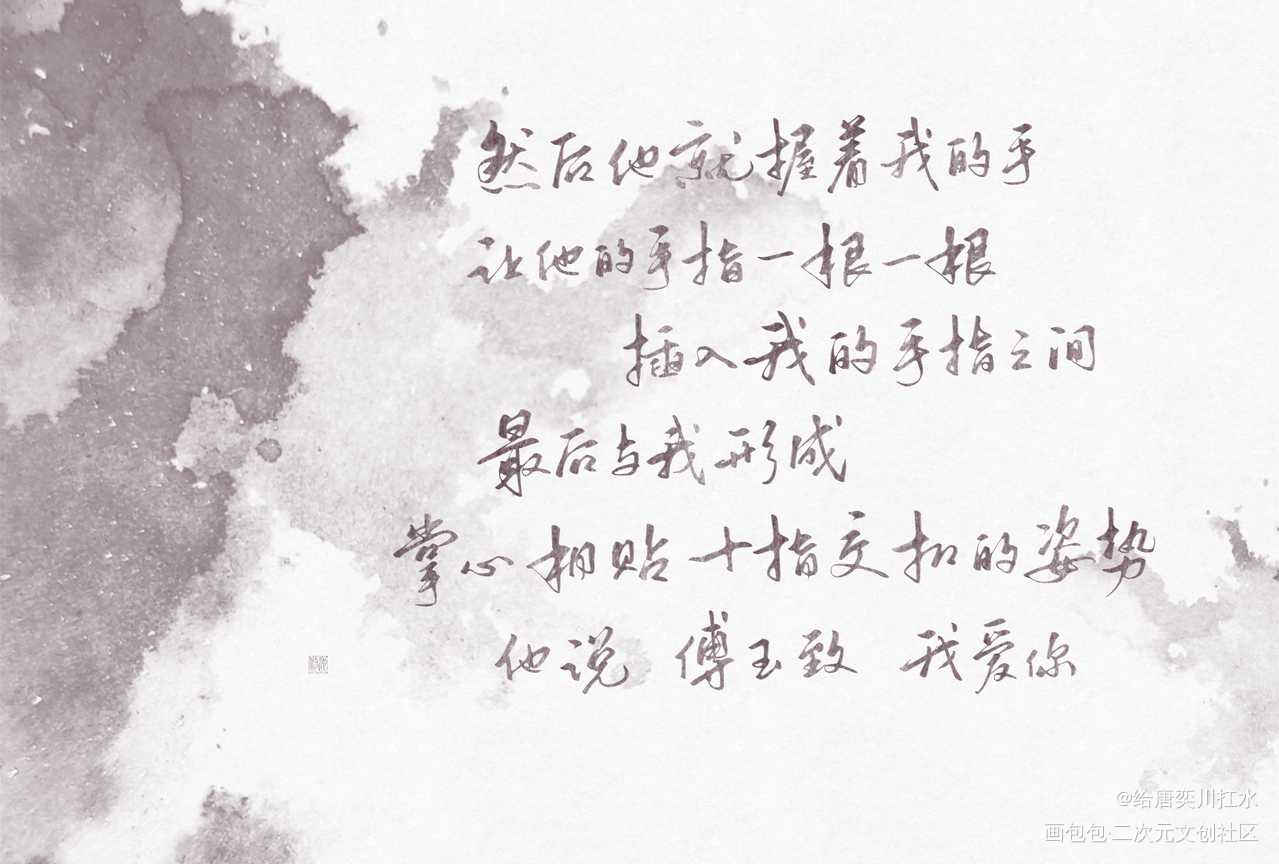 然后他就握着我的手
让他的手指一根一根
插入我的手指之间
最后与我形成
掌心相贴十指交扣的姿势
他说 傅玉致 我爱你
@给唐奕川扛水
画包包·二次元文创社区